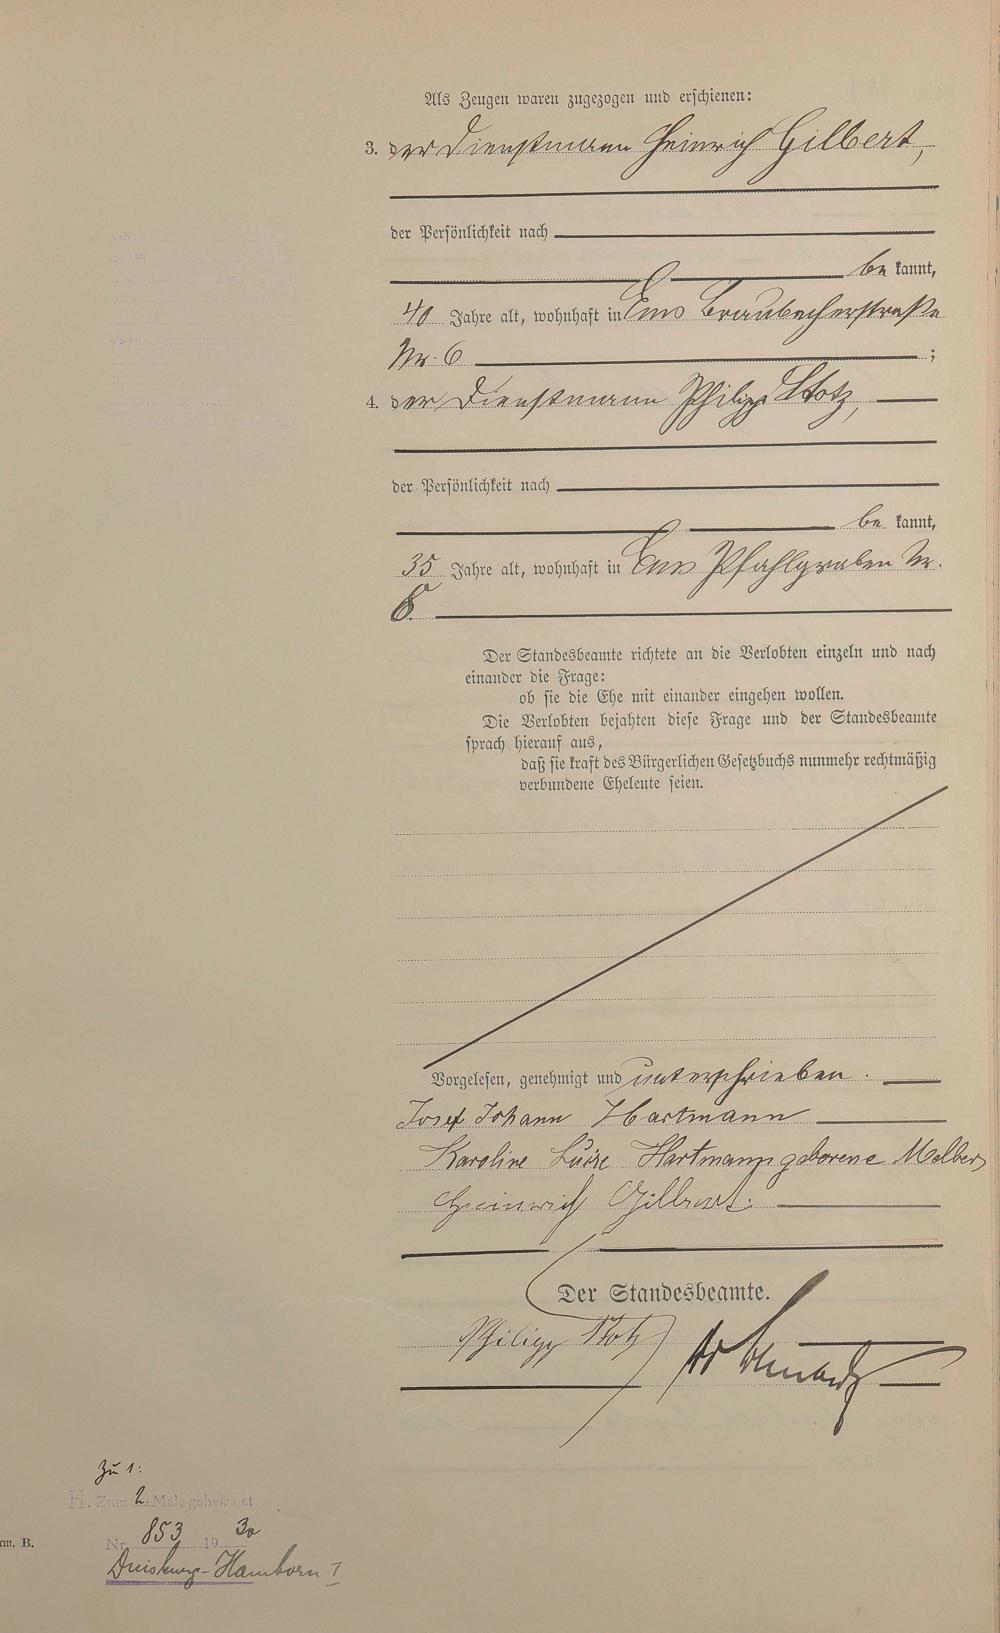 Als Zeugen waren zugezogen und erschienen:
3. der Dienstmann Heinrich Gilbert,
der Persönlichkeit nach
be kannt,
40 Jahre alt, wohnhaft in Ems Braubacherstraße
Nr. 6 ;
4. der Dienstmann Philipp Stotz,
der Persönlichkeit nach
be kannt,
35 Jahre alt, wohnhaft in Ems Pfahlgraben Nr.
8.
Der Standesbeamte richtete an die Verlobten einzeln und nach
einander die Frage:
ob sie die Ehe mit einander eingehen wollen.
Die Verlobten bejahten diese Frage und der Standesbeamte
sprach hierauf aus,
daß sie kraft des Bürgerlichen Gesetzbuchs nunmehr rechtmäßig
verbundene Eheleute seien.
Vorgelesen, genehmigt und unterschrieben.
Josef Johann Hartmann
Karoline Luise Hartmann geborene Melber
Heinrich Gilbert.
Der Standesbeamte.
Philipp Stotz
Zu 1:
H. Zum 2. Male geheiratet
Nr. 853 1930
Duisburg-Hamborn I
rm. B.